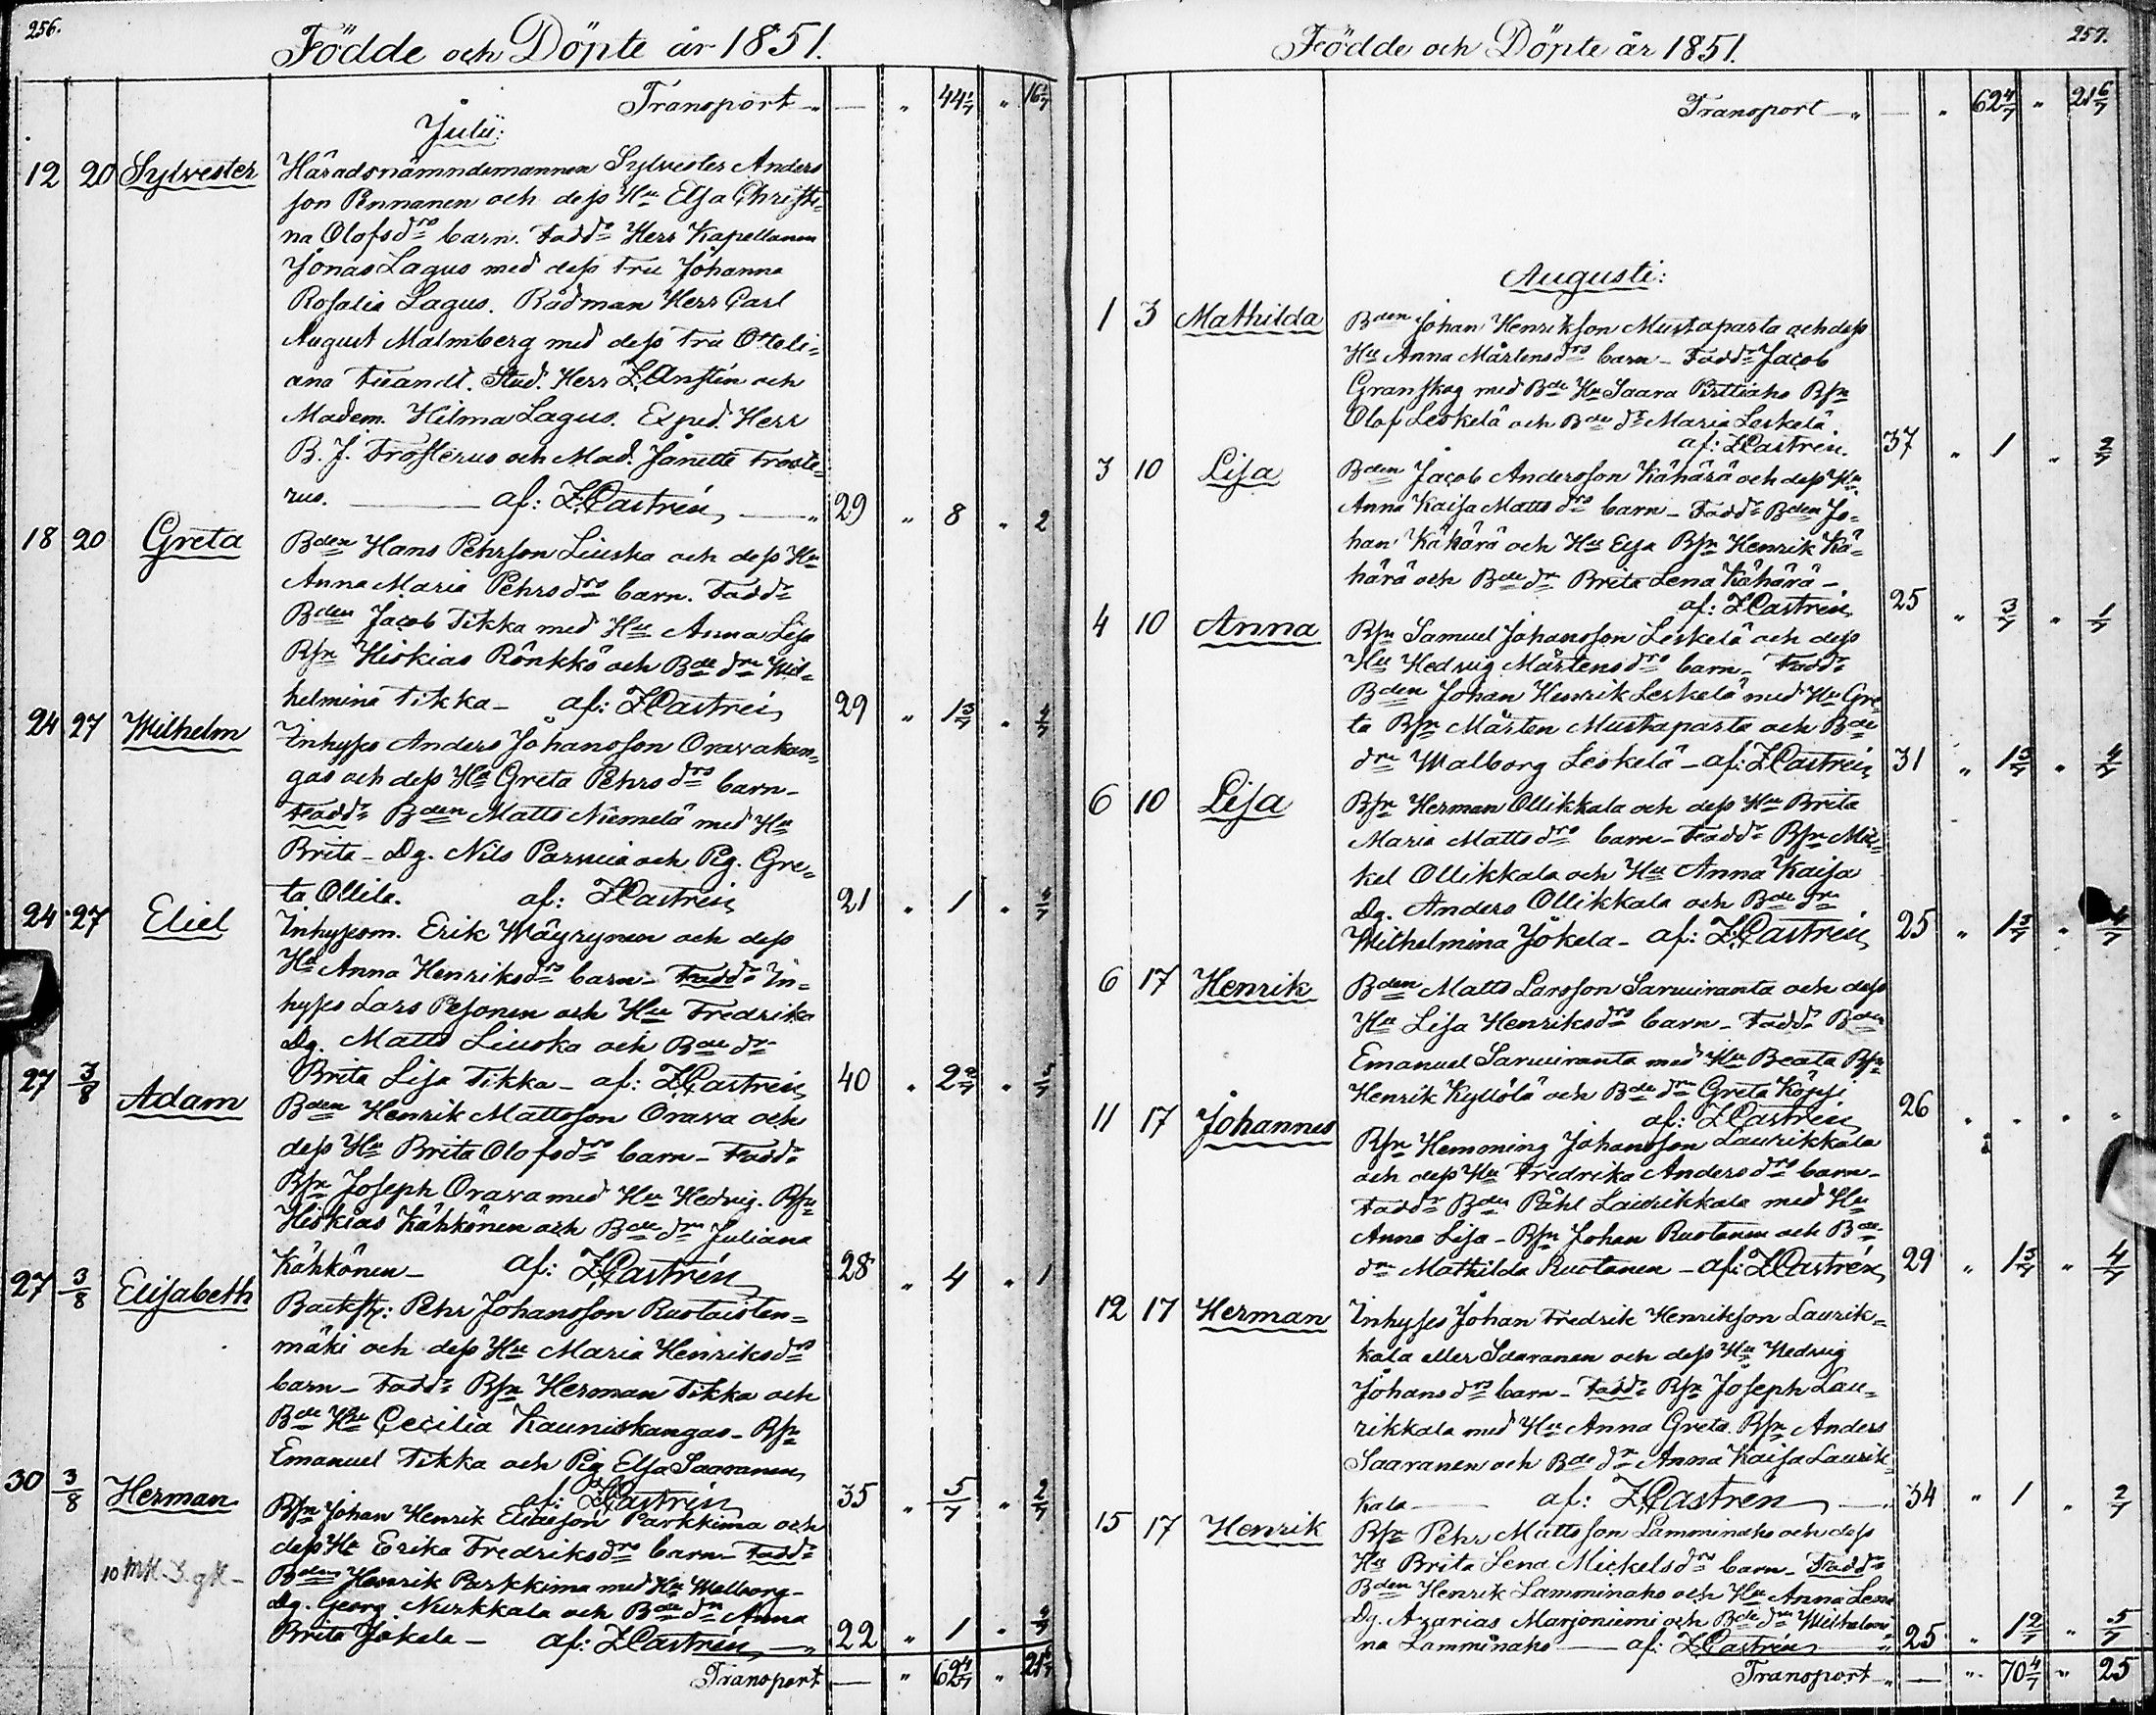 256.
Födde och Döpte år 1851.
Transport " — " 44 1/7 " 16 1/7
Julii:
12 20 Sylvester Häradsnämndemannen Sylvester Anders
son Pennanen och dess Hu Elsa Christi=
na Olofsdrs barn. Fadd: Herr Kapellanen
Jonas Lagus med dess Fru Johanna
Rosalia Lagus. Rådman Herr Carl
August Malmberg med dess Fru Ottoli=
ana Tuandt. Stud. Herr
och
Madem. Hilma Lagus. Exped. Herr
B. J. Frosterus och Mad. Janette Froste=
rus. — af: Z Castrén — " 29 " 8 " 2
18 20 Greta Bden Hans Pehrsson Liuska och dess Hu
Anna Maria Pehrsdrs barn. Fadd:
Bden Jacob Tikka med Hu Anna Lisa
Bsn Hiskias Rönkkö och Bde dn Wil=
helmina Tikka — af: Z Castrén 29 " 1 3/7 "
24 27 Wilhelm Inhyses Anders Johansson Oravakan=
gas och dess Hu Greta Pehrsdrs barn —
Fadd: Bden Matts Niemelä med Hu
Brita — Dg. Nils Parviia och Pig. Gre=
ta Ollila. af: Z Castrén 21 " 1 "
24 27 Eliel Inhysesm. Erik Mäyrynen och dess
Hu Anna Henriksdrs barn — Fadd: In=
hyses Lars Pesonen och Hu Fredrika
Dg. Matts Liuska och Bde dr
Brita Lisa Tikka — af: Z Castrén 40 " 2 2/7 "
27 3/8 Adam Bden Henrik Mattsson Orava och
dess Hu Brita Olofsdrs barn — Fadd:
Bsn Joseph Orava med Hu Hedvig. Bsn
Hiskias Kähkönen och Bde dn Juliana
Kähkönen — af: Z Castrén 28 " 4 " 1
27 3/8 Elisabeth Backst: Pehr Johansson Ruotoisten=
mäki och dess Hu Maria Henriksdrs
barn — Fadd: Bsn Herman Tikka och
Bde Hu Cecilia Kauniskangas — Bsn
Emanuel Tikka och Pig Elsa Saaranen
af: Z Castrén 35 " 5/7 " 2/7
30 3/8 Herman Bsn Johan Henrik Eliaeson Parkkima och
dess Hu Erika Fredriksdrs barn — Fadd:
10 MK. D. gK — Bden Henrik Parkkima med Hu Walborg —
Dg. Georg Nurkkala och Bde dn Anna
Brita Jokela — af: Z Castrén — " 22 " 1 "
Transport — " 62 4/7 " 21 6/7
257.
Födde och Döpte år 1851.
Transport — " — " 62 4/7 " 21 6/7
Augusti:
1 3 Mathilda Bden Johan Henriksson Mustaparta och dess
Hu Anna Mårtensdrs barn — Fadd: Jacob
Granskog med Bde Hu Saara Pittiaho Bsn
Olof Leskelä och Bde dr Maria Leskelä.
af: Z Castrén. 37 " 1 " 2/7
3 10 Lisa Bden Jacob Andersson Kähärä och dess Hu
Anna Kaisa Mattsdrs barn — Fadd: Bden Jo=
han Kähärä och Hu Elsa Bsn Henrik Kä=
härä och Bde dr Brita Lena Kähärä —
af: Z Castrén 25 " 3/7 " 1/7
4 10 Anna Bsn Samuel Johansson Leskelä och dess
Hu Hedvig Mårtensdrs barn — Fadd:
Bden Johan Henrik Leskelä med Hu Gre=
ta Bsn Mårten Mustaparta och Bde
drn Walborg Leskelä — af: Z Castrén 31 " 1 3/7 " 4/7
6 10 Lisa Bsn Herman Ollikkala och dess Hu Brita
Maria Mattsdrs barn — Fadd: Bsn Mic=
kel Ollikkala och Hu Anna Kaisa
Dg. Anders Ollikkala och Bde drn
Wilhelmina Jokela — af: Z Castrén 25 " 1 3/7 " 4/7
6 17 Henrik Bden Matts Larsson Sarwiranta och dess
Hu Lisa Henriksdrs barn — Fadd: Bden
Emanuel Sarwiranta med Hu Beata Bsn
Henrik Kyllölä och Bde drn Greta Köpsi
af: Z Castrén 26 " " " "
11 17 Johannes Bsn Hemming Johansson Laurikkala
och dess Hu Fredrika Andersdrs barn —
Fadd: Bden Påhl Laurikkala med Hu
Anna Lisa — Bsn Johan Ruotanen och Bde
drn Mathilda Ruotanen — af: Z Castrén 29 " 1 3/7 " 4/7
12 17 Herman Inhyses Johan Fredrik Henriksson Laurik=
kala eller Saaranen och dess Hu Hedvig
Johansdrs barn — Fadd: Bsn Joseph Lau=
rikkala med Hu Anna Greta. Bsn Anders
Saaranen och Bde dr Anna Kaisa Laurik=
kala — af: Z Castrén — " 34 " 1 " 2/7
15 17 Henrik Bsn Pehr Mattsson Lamminaho och dess
Hu Brita Lena Mickelsdrs barn — Fadd:
Bden Henrik Lamminaho och Hu Anna Lena
Dg. Azarias Marjoniemi och Bde drn Wilhelmi=
na Lamminaho — af: Z Castrén " 25 " 1 2/7 " 5/7
Transport — " — " 70 4/7 " 25